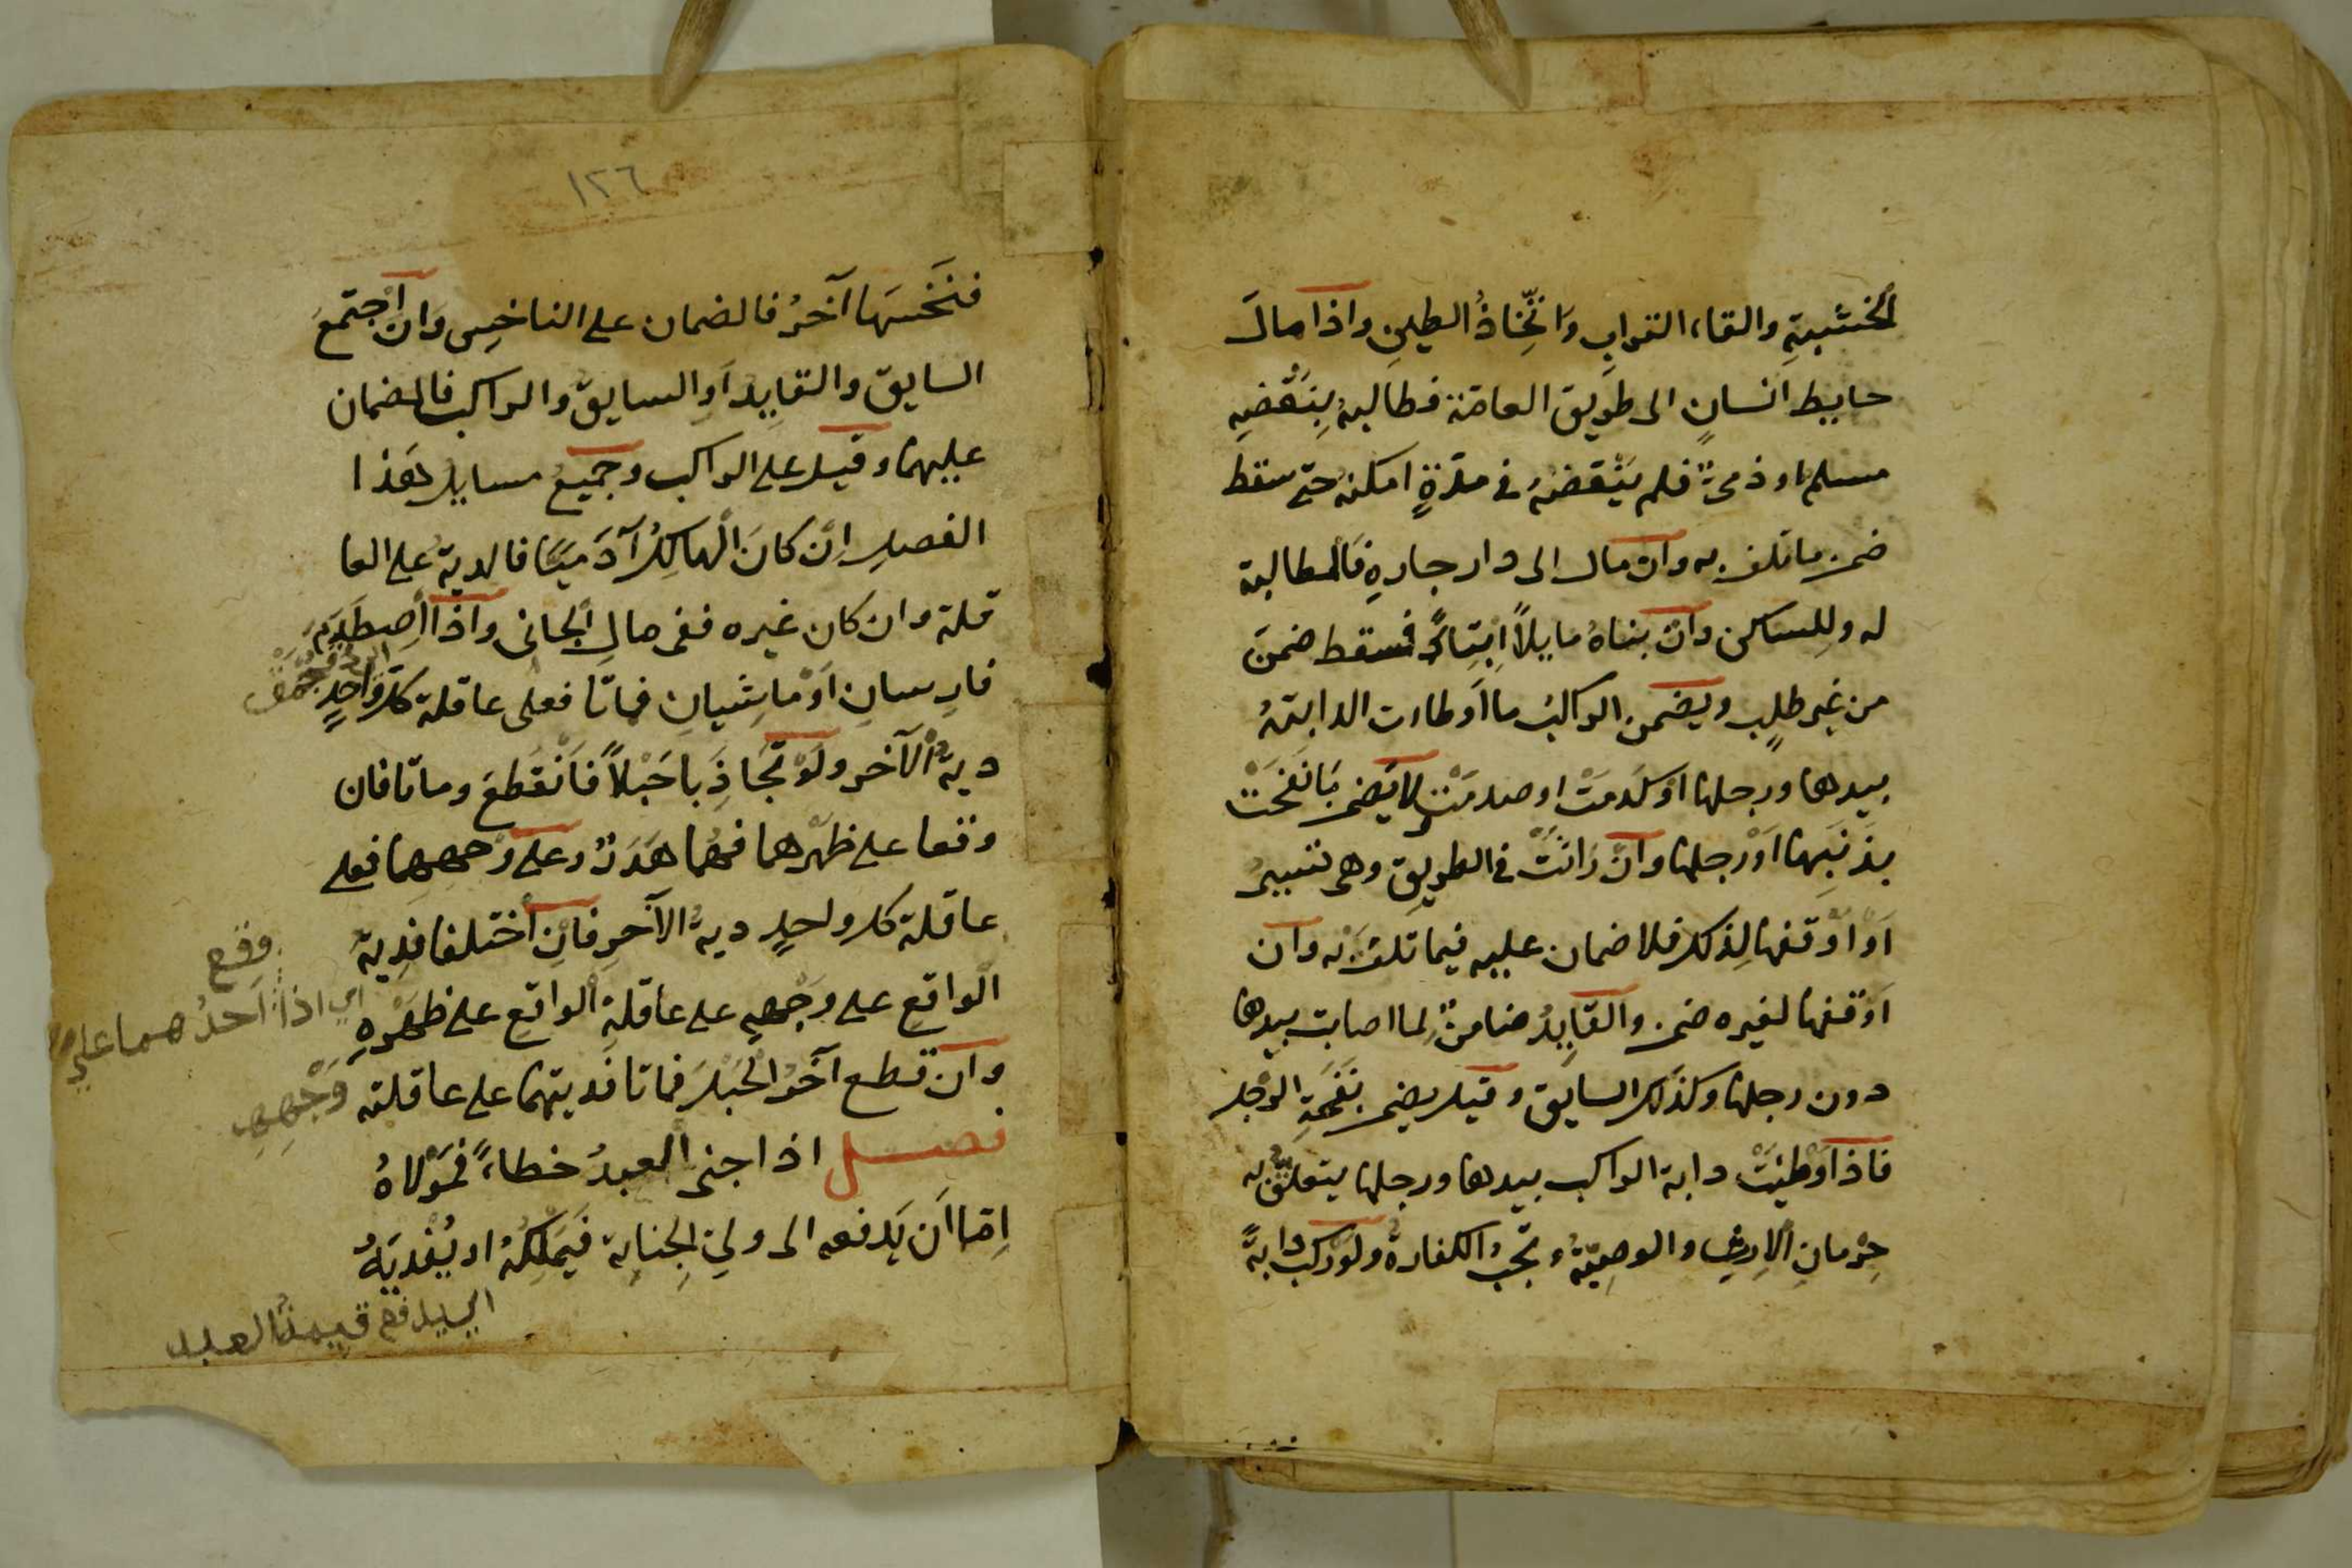 الخشبةِ والقاء الترابِ وَاتِّخاذُ الطينِ واذا مالَ
حايط انسانٍ الى طريق العامّة فطالبهُ بِنَقْضِهِ
مسلم او ذمىٌّ فلم يَنْقضهُ فى مدّةٍ امكنهُ حتى سقط
ضمن ما تلف به وان مال الى دار جارهِ فَالمطالبة
له ولِلساكن وان بناهُ مايلاً اِبْتِداءً فسقط ضمنَ
من غير طلبٍ ويضمن الراكبُ ما اَوطاءت الدابتهُ
بيدها ورجلها اَوْ كَدَمَتْ او صدمَتْ لا يَضمن مَا نَفَحَتْ
بِذَنَبِها اَوْ رجلها وانْ رَاثَتْ فى الطريقِ وهى تسيرُ
اَوْ اَوْقفها لِذلك فلا ضمان عليه فيما تلفَ به وان
اَوْقفها لغيره ضمن والقَايِدُ ضامنٌ لما اصابت بيدها
دون رجلها وكذلك السايق وقيل يضمن بِنَفحَةِ الرّجل
فاذا وَطِئتْ دابة الراكب بيدها ورجلها يتعلّقُ به
حِرْمانِ الاِرثِ والوصِيّةُ وتجبُ الكفارةُ ولوْ ركب دابةً
١٢٦
فنَخَسَها آخرُ فالضمان على الناخِسِ وَانْ اجتمعَ
السايق والقايِدُ اَوِ السايقُ والراكب فالضمان
عليهما وقيل على الراكب وجميعُ مسايل هَذا
الفصلِ اِنْ كانَ الْهالِكُ آدَمِيًّا فالدية على العا
قلة وان كان غيره ففى مالِ الْجانى واذا اصطَدَمَ
فارِسانِ اَوْ ماشِيانِ فماتا فعلى عاقلة كلِّ واحدٍ
ديةُ الآخر ولَوْ تَجَاذَبا حَبْلاً فَانْقَطعَ وماتا فان
وقعا على ظهْرهما فهُما هَدَرٌ وعلى وَجههما فعلى
عاقلة كل واحدٍ ديةُ الآخرِ فانِ اخْتلفا فدِيةُ
الْواقعِ على وَجْههِ على عاقلةِ الْواقعِ على ظهْرهِ
وان قطع آخرُ الْحَبْلَ فماتا فديتهما على عاقلته
فصل اذا جنى الْعبدُ خطاءً فمَوْلاهُ
اِمّا اَن يَدفعه الى ولىِّ الْجِنايَة فَيَمْلكهُ او يُفْديَهُ
وقع
اي اذا اَحدُهما على
وَجْهِهِ
اي يدفع قيمةُ العبد